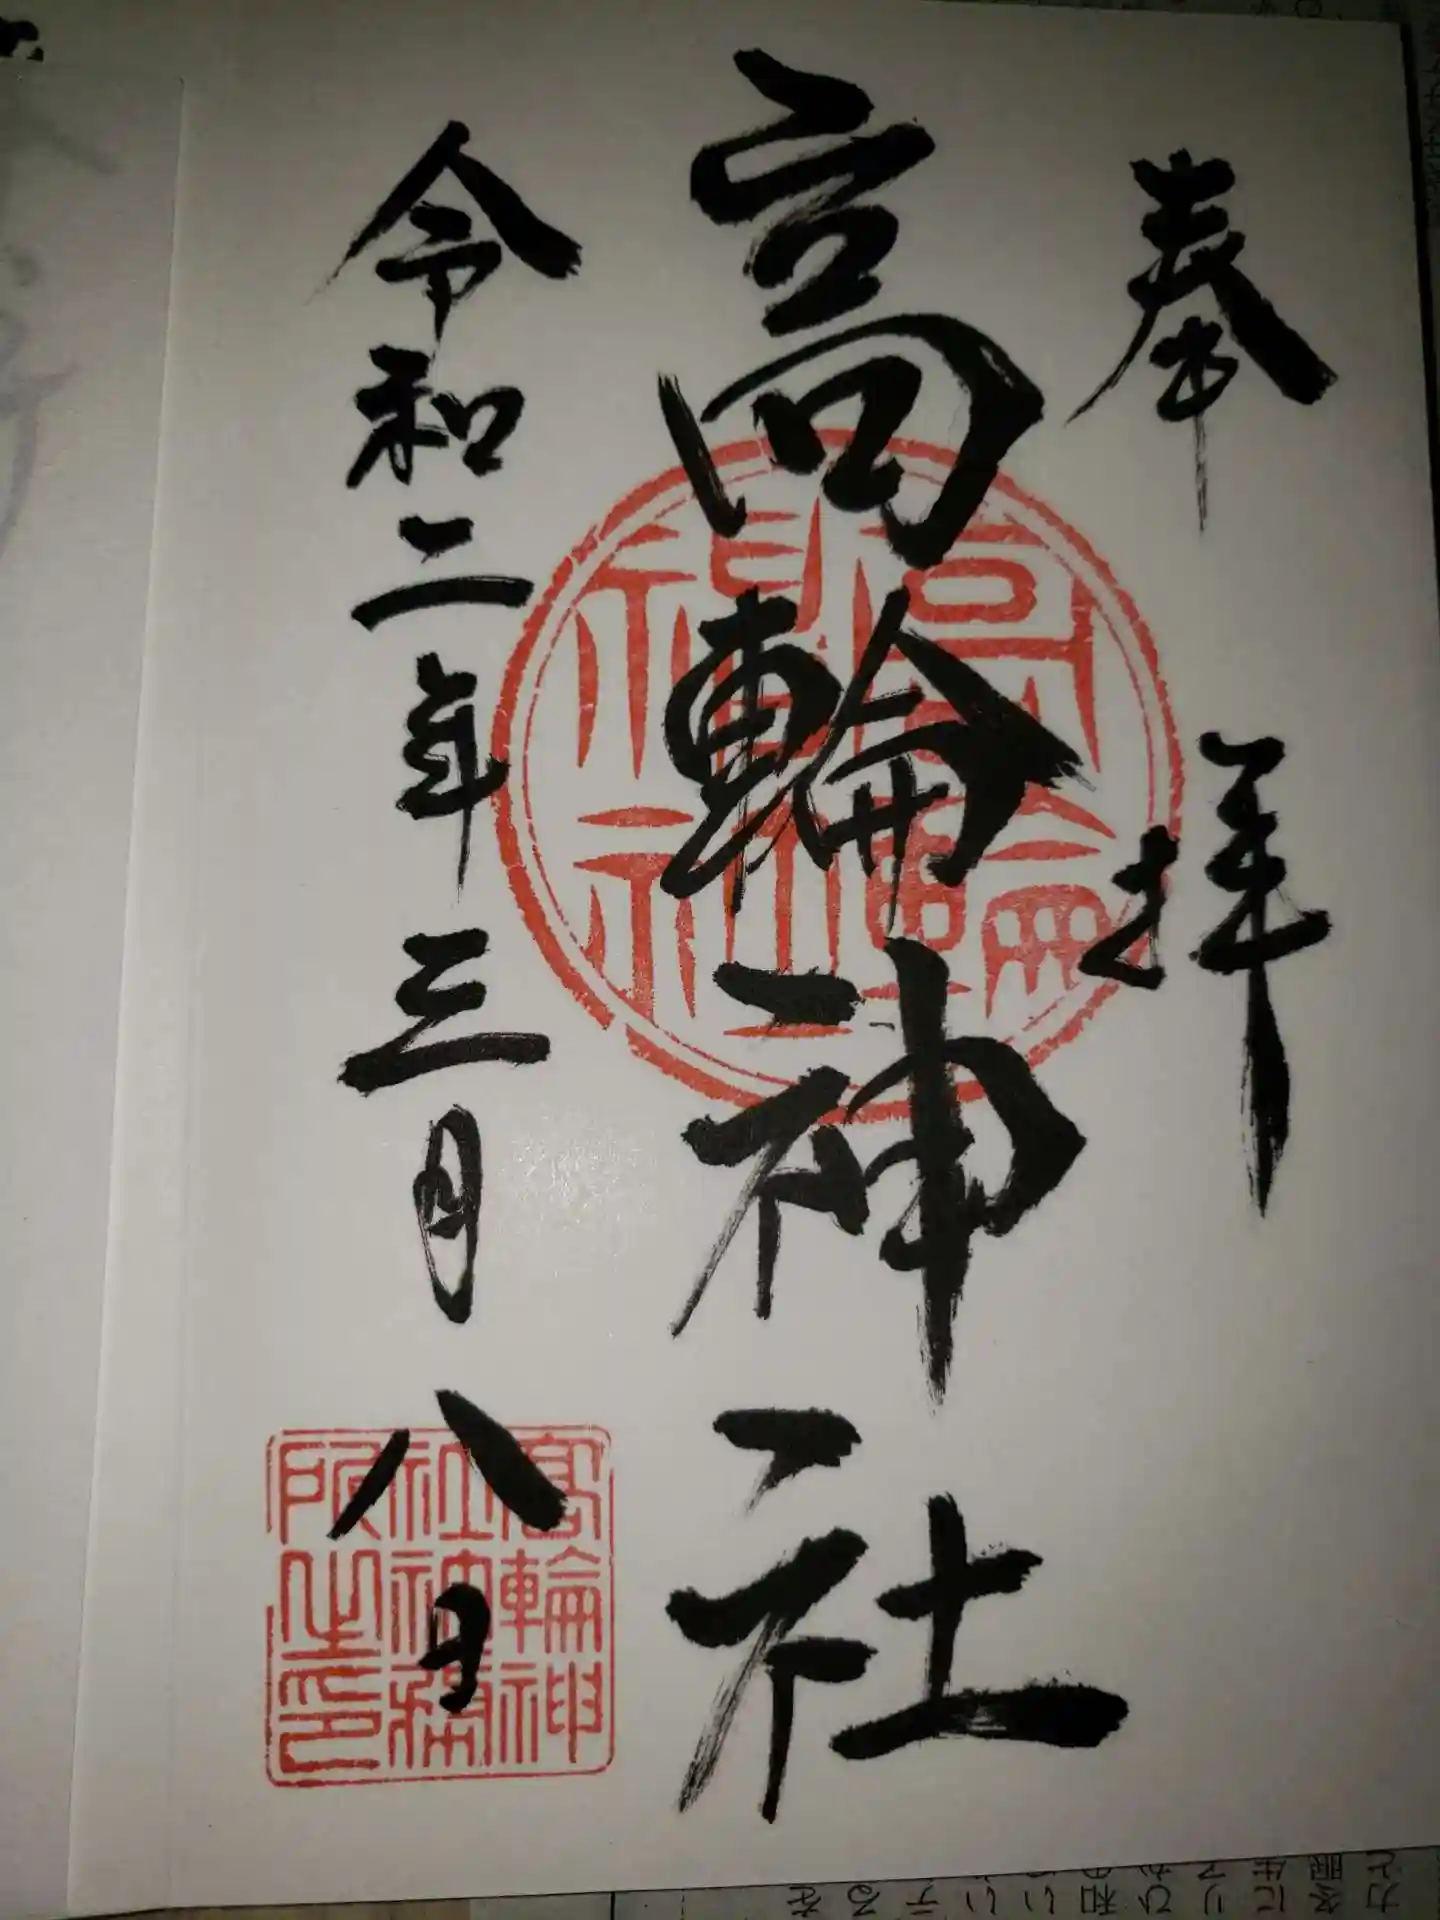 奉拝
高輪神社
令和二年三月八日
高輪神社
高輪神
社神務
所之印